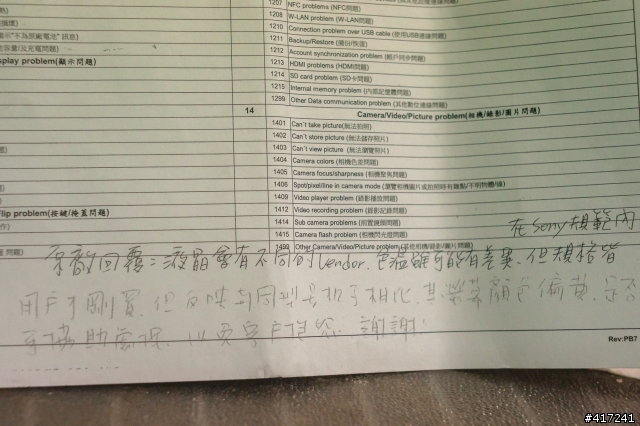 1207 NFC problems (NFC問題)
1208 W-LAN problem (W-LAN問題)
1210 Connection problem over USB cable (使用USB連線問題)
1211 Backup/Restore (備份/恢復)
1212 Account synchronization problem (帳戶同步問題)
1213 HDMI problems (HDMI問題)
1214 SD card problem (SD卡問題)
1215 Internal memory problem (內部記憶體問題)
1299 Other Data communication problem (其他數位連線問題)
示"不為原廠電池" 訊息)
充電問題)
splay problem(顯示問題)
14 Camera/Video/Picture problem(相機/錄影/圖片問題)
1401 Can't take picture(無法拍照)
1402 Can't store picture (無法儲存照片)
1403 Can't view picture (無法瀏覽照片)
1404 Camera colors (相機色差問題)
1405 Camera focus/sharpness (相機聚焦問題)
1406 Spot/pixel/line in camera mode (瀏覽相機圖片或拍照時有斑點/不明物體/線)
1409 Video player problem (錄影播放問題)
1412 Video recording problem (錄影記錄問題)
1414 Sub camera problems (前置鏡頭問題)
1415 Camera flash problem (相機閃光燈問題)
1499 Other Camera/Video/Picture problem (其他相機/錄影/圖片問題)
Flip problem(按鍵/掩蓋問題)
問題)
在Sony規範內
原廠回覆:液晶會有不同的Vendor.色溫雖可能有差異.但規格皆
用戶才剛買.但反映與同型手機相比.其螢幕顏色偏黃.是否
可協助處理.以免客戶抱怨 謝謝!
Rev:PB7
#417241